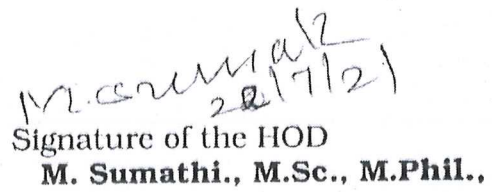 M. Sumathi
22/7/21
Signature of the HOD
M. Sumathi., M.Sc., M.Phil.,